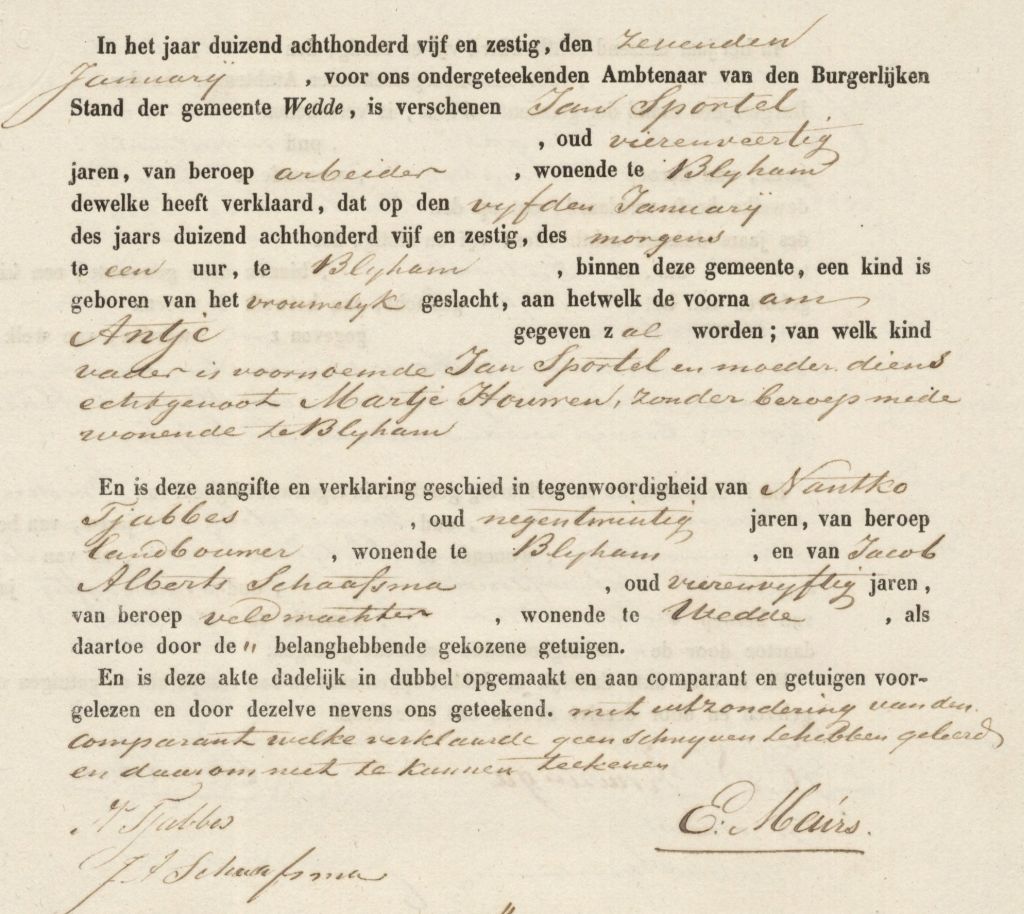 In het jaar duizend achthonderd vijf en zestig, den zevenden
Januarij , voor ons ondergeteekenden Ambtenaar van den Burgerlijken
Stand der gemeente Wedde, is verschenen Jan Sportel
, oud vierenveertig
jaren, van beroep arbeider , wonende te Blyham
dewelke heeft verklaard, dat op den vyfden Januarij
des jaars duizend achthonderd vijf en zestig, des morgens
te een uur, te Blyham , binnen deze gemeente, een kind is
geboren van het vrouwelyk geslacht, aan hetwelk de voorna am
Antje gegeven z al worden; van welk kind
vader is voornoemde Jan Sportel en moeder diens
echtgenoot Martje Houwen, zonder beroep mede
wonende te Blyham
En is deze aangifte en verklaring geschied in tegenwoordigheid van Nantko
Tjabbes , oud negentwintig jaren, van beroep
landbouwer , wonende te Blyham , en van Jacob
Alberts Schaafsma , oud vierenvyftig jaren,
van beroep veldwachter , wonende te Wedde , als
daartoe door de " belanghebbende gekozene getuigen.
En is deze akte dadelijk in dubbel opgemaakt en aan comparant en getuigen voor-
gelezen en door dezelve nevens ons geteekend. met uitzondering van den
comparant welke verklaarde geen schryven te hebben geleerd
en daarom niet te kunnen teekenen
N Tjabbes
E. Mairs.
J A Schaafsma